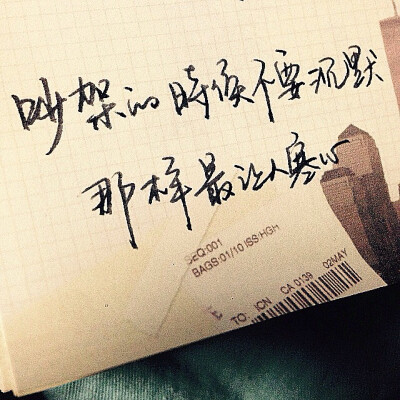 吵架的時候不要沉默
那样最让人寒心
SEQ:001
BAGS:01/10 ISS:HGH
TO: ICN CA 0139 02MAY